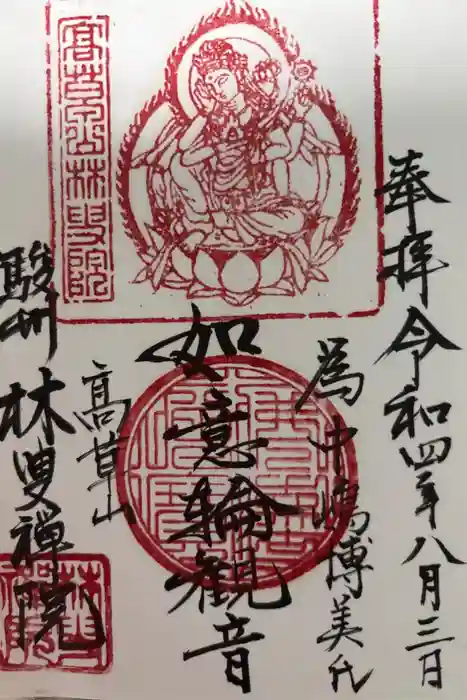 奉拝 令和四年八月三日
為 中嶋博美氏
如意輪観音
高草山
駿州 林叟禅院
高草山林叟院